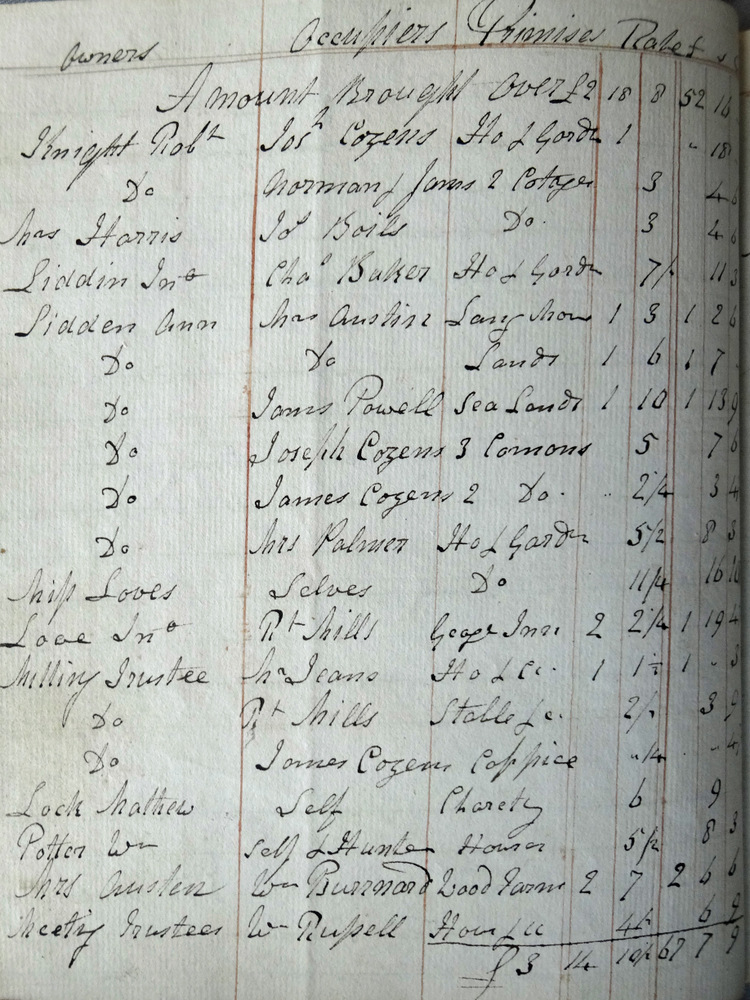 Owners Occupiers Primises Rate £ s
Amount Brought Over £2 18 8 52 16
Knight Robt Josh Cozens Ho & Garde 1 " 18
Do Norman & Jams 2 Cotages 3 4 6
Mrs Harris Jos Boils Do 3 4 6
Liddin Jno Chas Baker Ho & Garde 7/ 11 3
Lidden Ann Mrs Austin Lang 1 3 1 2 6
Do Do Lands 1 6 1 7
Do Jams Powell Sea Lands 1 10 1 13 9
Do Joseph Cozens 3 Comons 5 7 6
Do James Cozens 2 Do 2 1/4 3 4
Do Mrs Palmer Ho & Garde 5 1/2 8 3
Miss Loves Selves Do 11 1/4 16
Love Jno Rt Mills George Inn 2 2 1/4 1 19 4
Trustee Mr Jeans Ho & Cc 1 1 1/2 1 " 3
Do Rt Mills Stable & c 2 1/2 3 9
Do James Cozens Coppice " 1/4 " 4
Lock Mathew Self Charety 6 9
Potter Wm Self & Hunter Houses 5 1/2 8 3
Mrs Austen Wm Burrnard Wood Farm 2 7 2 6 6
Meeting Trustees Wm Russell Hous & cc 4 1/2 6 9
£3 14 10 1/2 67 7 9